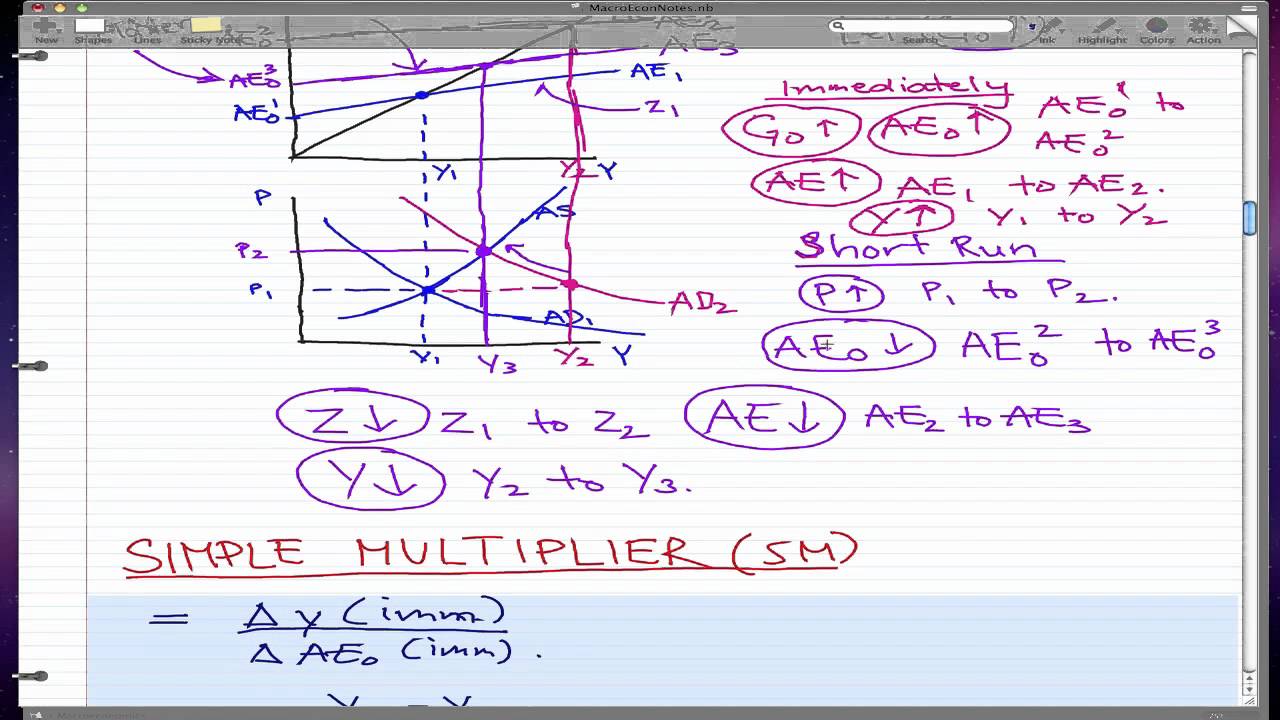 MacroEconNotes.nb
New Shapes Lines Sticky Note Search Ink Highlight Colors Action
AE₃
AE₀³
AE₁
AE₀¹
Z₁
Y₁ Y₂ Y
P
AS
P₂
P₁
AD₂
AD₁
Y₁ Y₃ Y₂ Y
Immediately
G₀ ↑ AE₀ ↑ AE₀¹ to
AE₀²
AE ↑ AE₁ to AE₂.
Y ↑ Y₁ to Y₂
Short Run
P ↑ P₁ to P₂.
AE₀ ↓ AE₀² to AE₀³
Z ↓ Z₁ to Z₂ AE ↓ AE₂ to AE₃
Y ↓ Y₂ to Y₃.
SIMPLE MULTIPLIER (SM)
= Δ Y (imm)
Δ AE₀ (imm).
Macroeconomics